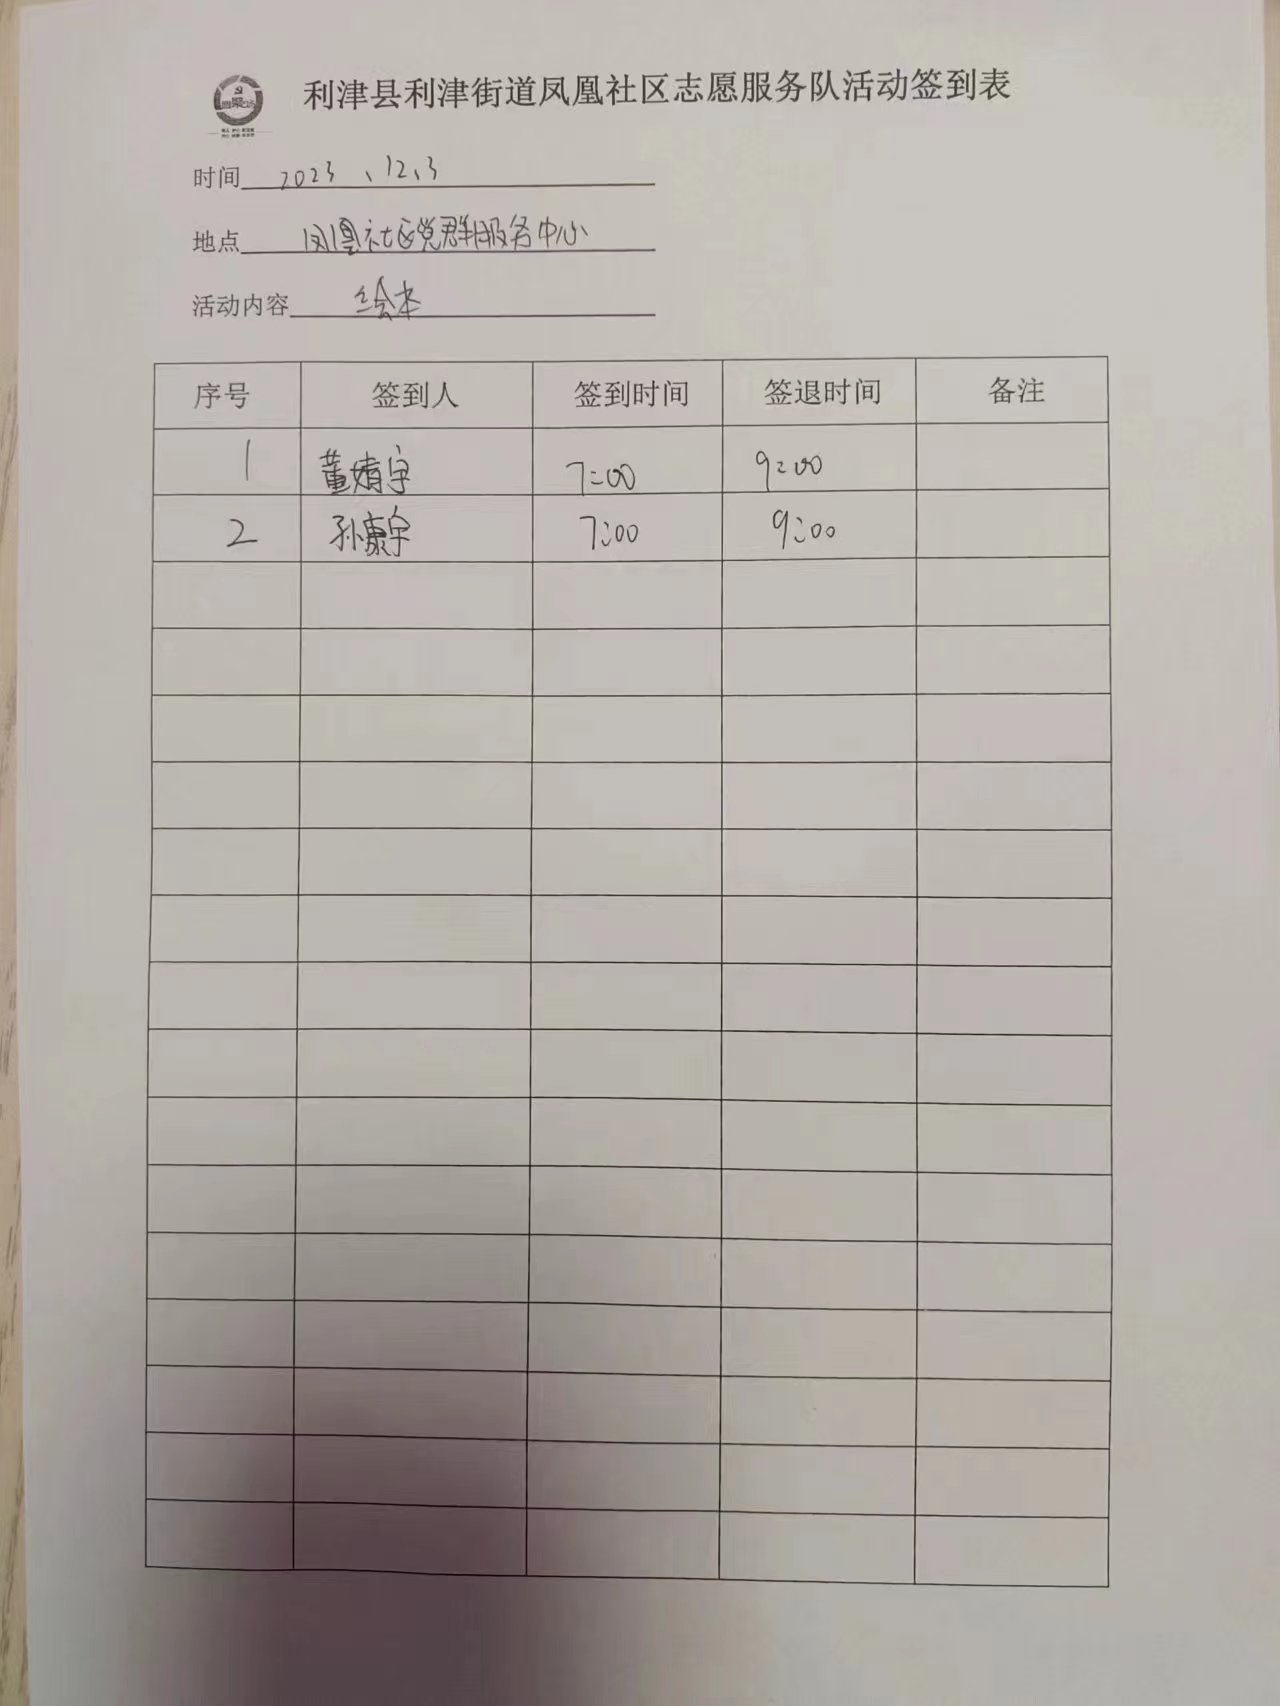 利津县利津街道凤凰社区志愿服务队活动签到表
时间 2023、12、3
地点 凤凰社区党群服务中心
活动内容 绘本
序号 签到人 签到时间 签退时间 备注
1 董婧宇 7:00 9:00
2 孙康宇 7:00 9:00